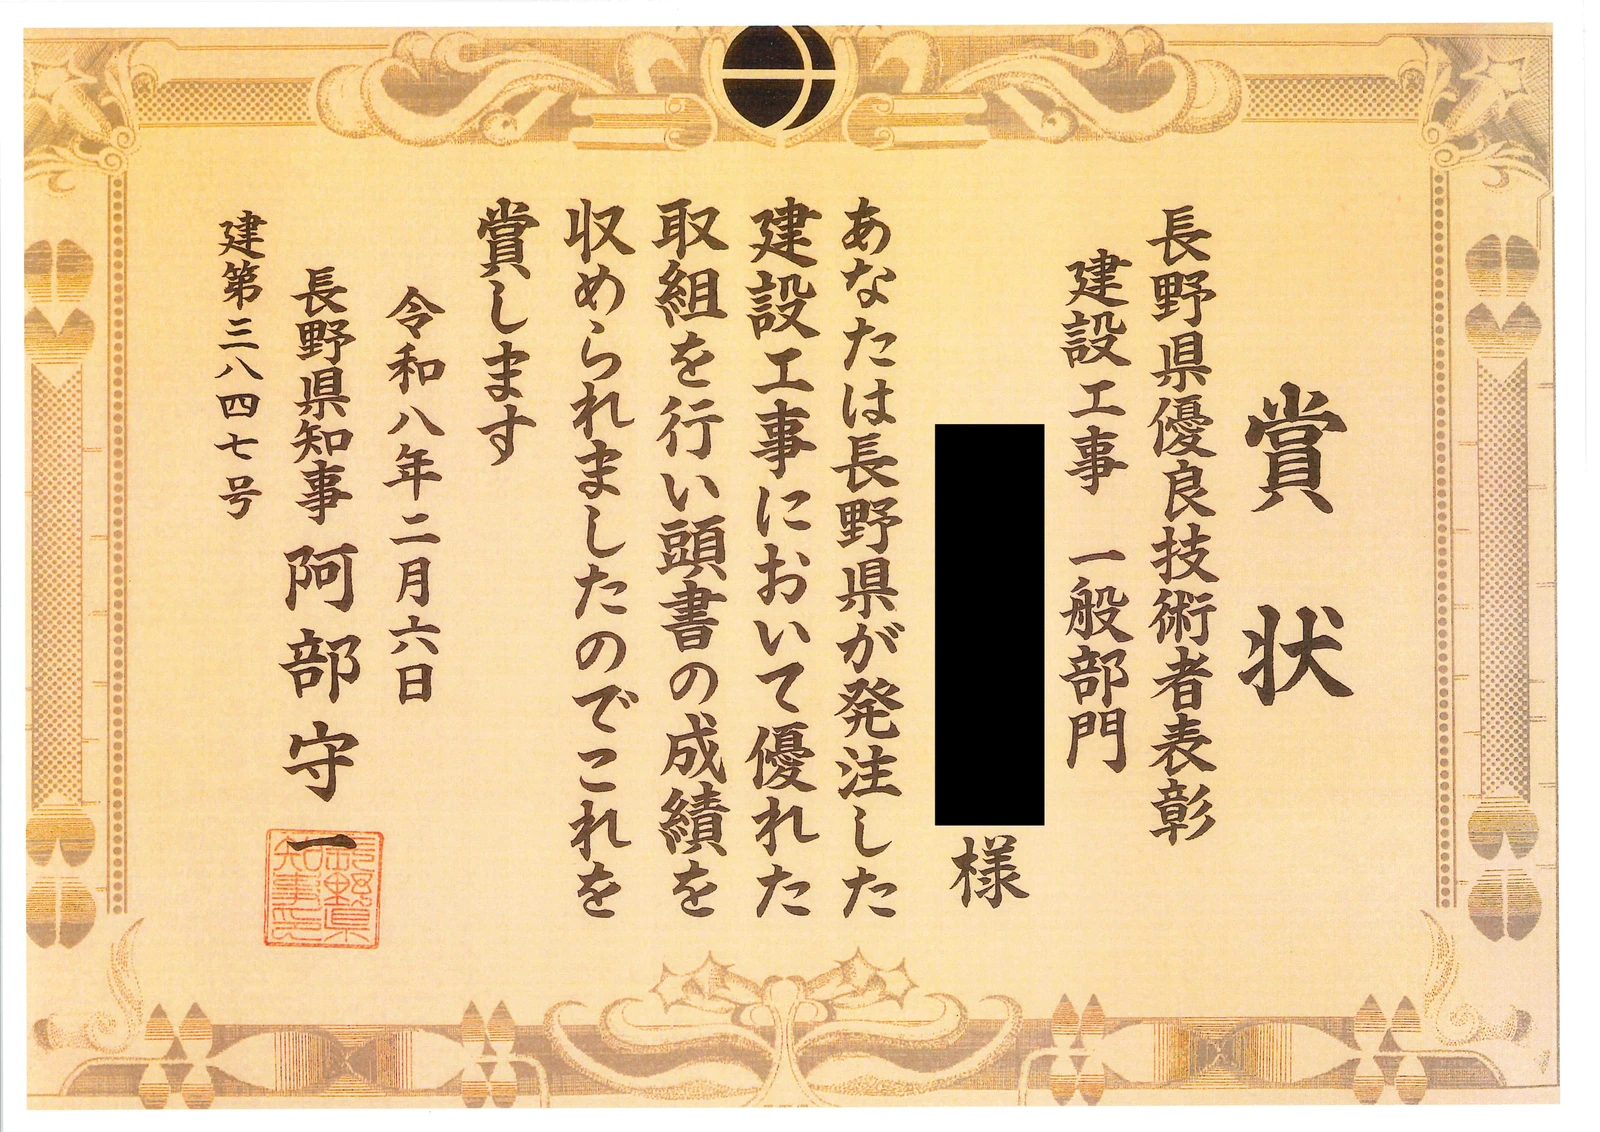 賞状
長野県優良技術者表彰
建設工事 一般部門
様
あなたは長野県が発注した
建設工事において優れた
取組を行い頭書の成績を
収められましたのでこれを
賞します
令和八年二月六日
長野県知事 阿部守一
長野県知事之印
建第三八四七号